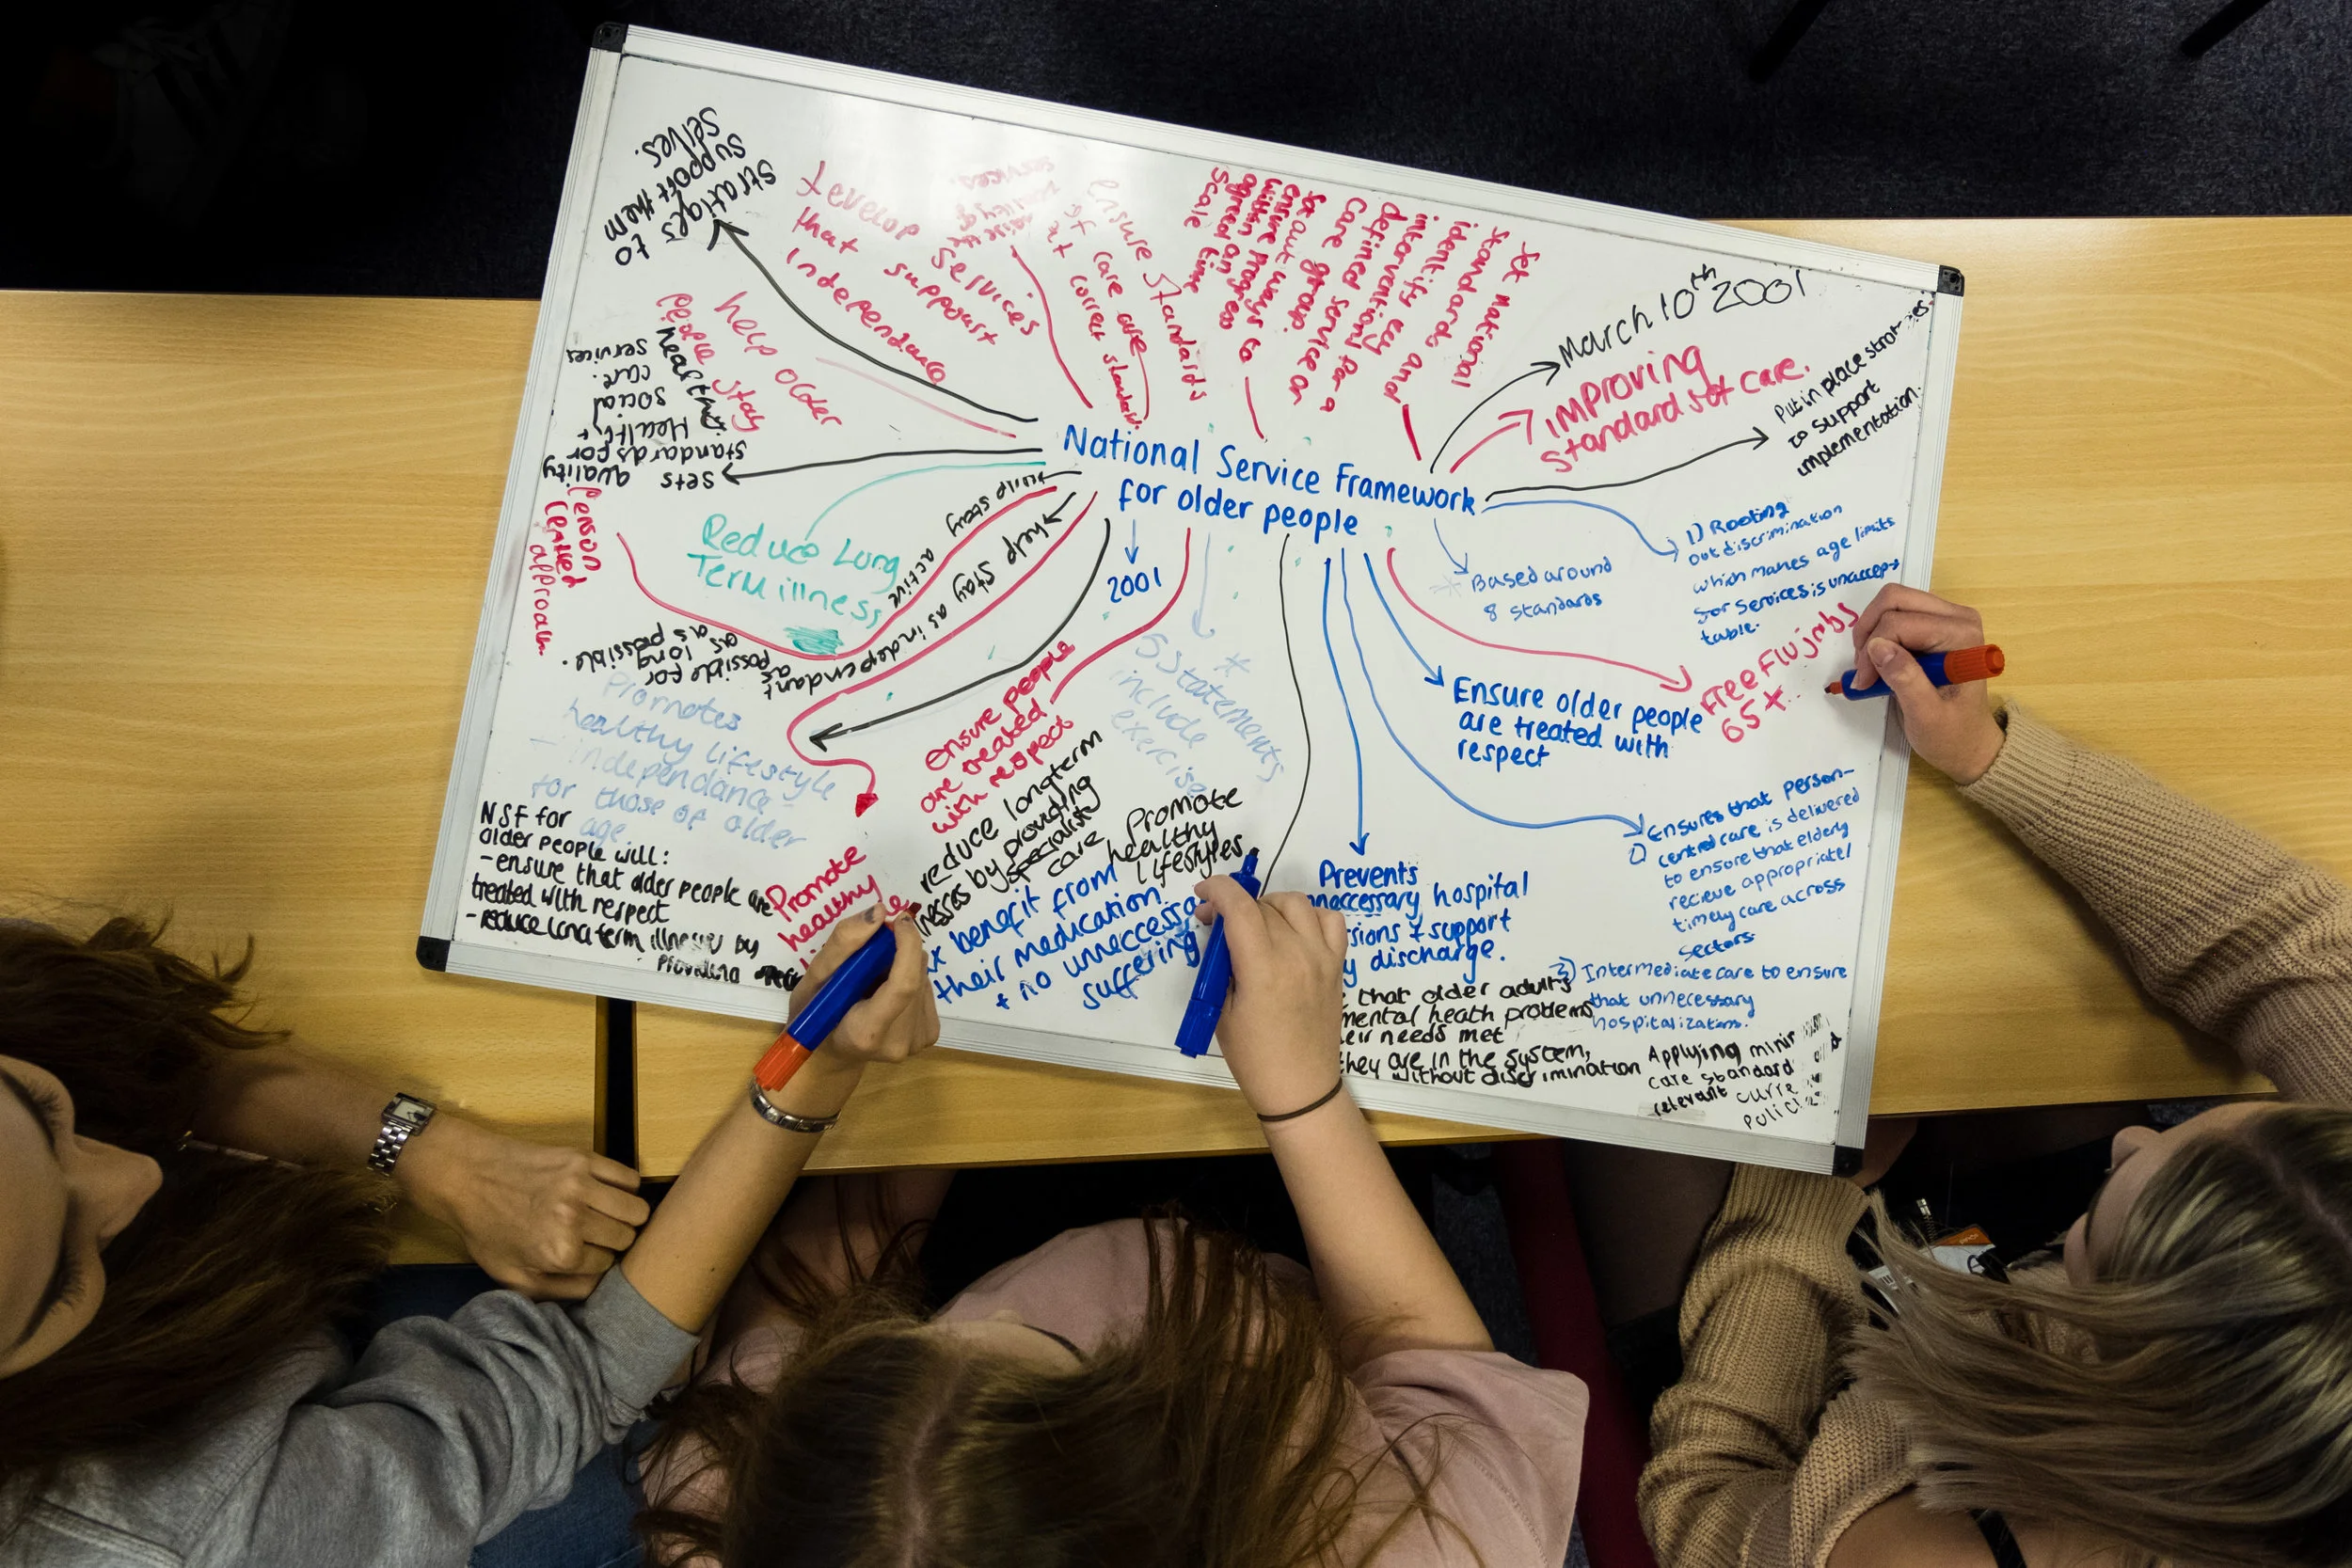 National Service Framework
for older people
March 10th 2001
IMPROVING
standards of care.
Put in place strat
to support
implementation.
1) Rooting
out discrimination
which makes age limits
for services is unaccep-
table.
* Based around
8 standards
Free Flu jabs
65+
Ensure older people
are treated with
respect
Ensures that person-
centred care is delivered
to ensure that elderly
recieve appropriate/
timely care across
sectors
3) Intermediate care to ensure
that unnecessary
hospitalization.
Applying
care standard
relevant curre
Prevents
hospital
support
discharge.
that older adults
mental heath problems
needs met
they are in the system,
without discrimination
2001
*
5 statements
include
exercise
Promote
healthy
lifestyles
benefit from
their medication.
+ no
suffering
ensure people
are treated
with respect
reduce longterm
by providing
specialist
care
Promote
healthy
NSF for
older people will:
- ensure that older people are
treated with respect
- reduce long term illnesses by
Providing
Promotes
healthy lifestyle
- independance -
for those of older
age
help stay as independant
as
possible
for
as long
as possible.
help stay active
Reduce Long
Term illness
Person
Centred
approach.
sets quality
standards for
Health +
social
care
services
help older
people stay
healthy
stratiges to
support them
selves.
develop services
that support
independance
raise the
quality of
services.
ensure standards
of care are
at correct standard
Set out ways to
ensure progress
within an
agreed time
scale
Set national
standards and
identify key
interventions for a
defined service or
care group.